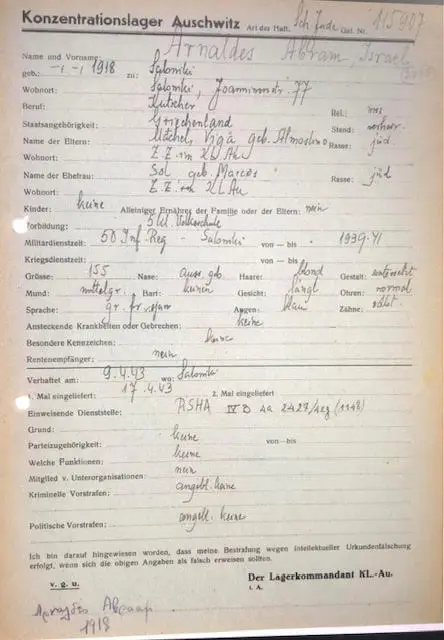 Konzentrationslager Auschwitz Art der Haft: Sch. Jude Gef. Nr.
Arnaldes Abram Israel
Name und Vorname:
geb.: -,- 1918 zu: Saloniki
Wohnort: Saloniki, 77
Beruf: Kutscher Rel.: mos
Staatsangehörigkeit: Griechenland Stand: verheir.
Name der Eltern: geb. Rasse: jüd
Wohnort: Z. Z. im KL Au
Name der Ehefrau: Sol geb. Marcos Rasse: jüd
Wohnort: Z. Z. im KL Au
Kinder: keine Alleiniger Ernährer der Familie oder der Eltern: nein
Vorbildung: 5 Kl. Volksschule
Militärdienstzeit: 50 Inf. Reg - Saloniki von — bis 1939-41
Kriegsdienstzeit: von — bis
Grösse: 155 Nase: ausg. geb. Haare: blond Gestalt: untersetzt
Mund: mittelgr. Bart: keinen Gesicht: längl Ohren: normal
Sprache: gr. fr. span Augen: blau Zähne:
Ansteckende Krankheiten oder Gebrechen: keine
Besondere Kennzeichen: keine
Rentenempfänger: nein
Verhaftet am: 9.4.43 wo: Saloniki
1. Mal eingeliefert: 17.4.43 2. Mal eingeliefert
Einweisende Dienststelle: RSHA IV B 4a
Grund:
Parteizugehörigkeit: keine von — bis
Welche Funktionen: keine
Mitglied v. Unterorganisationen: nein
Kriminelle Vorstrafen: angebl. keine
Politische Vorstrafen: angebl. keine
Ich bin darauf hingewiesen worden, dass meine Bestrafung wegen intellektueller Urkundenfälschung
erfolgt, wenn sich die obigen Angaben als falsch erweisen sollten.
v. g. u. Der Lagerkommandant KL.=Au.
i. A.
1918